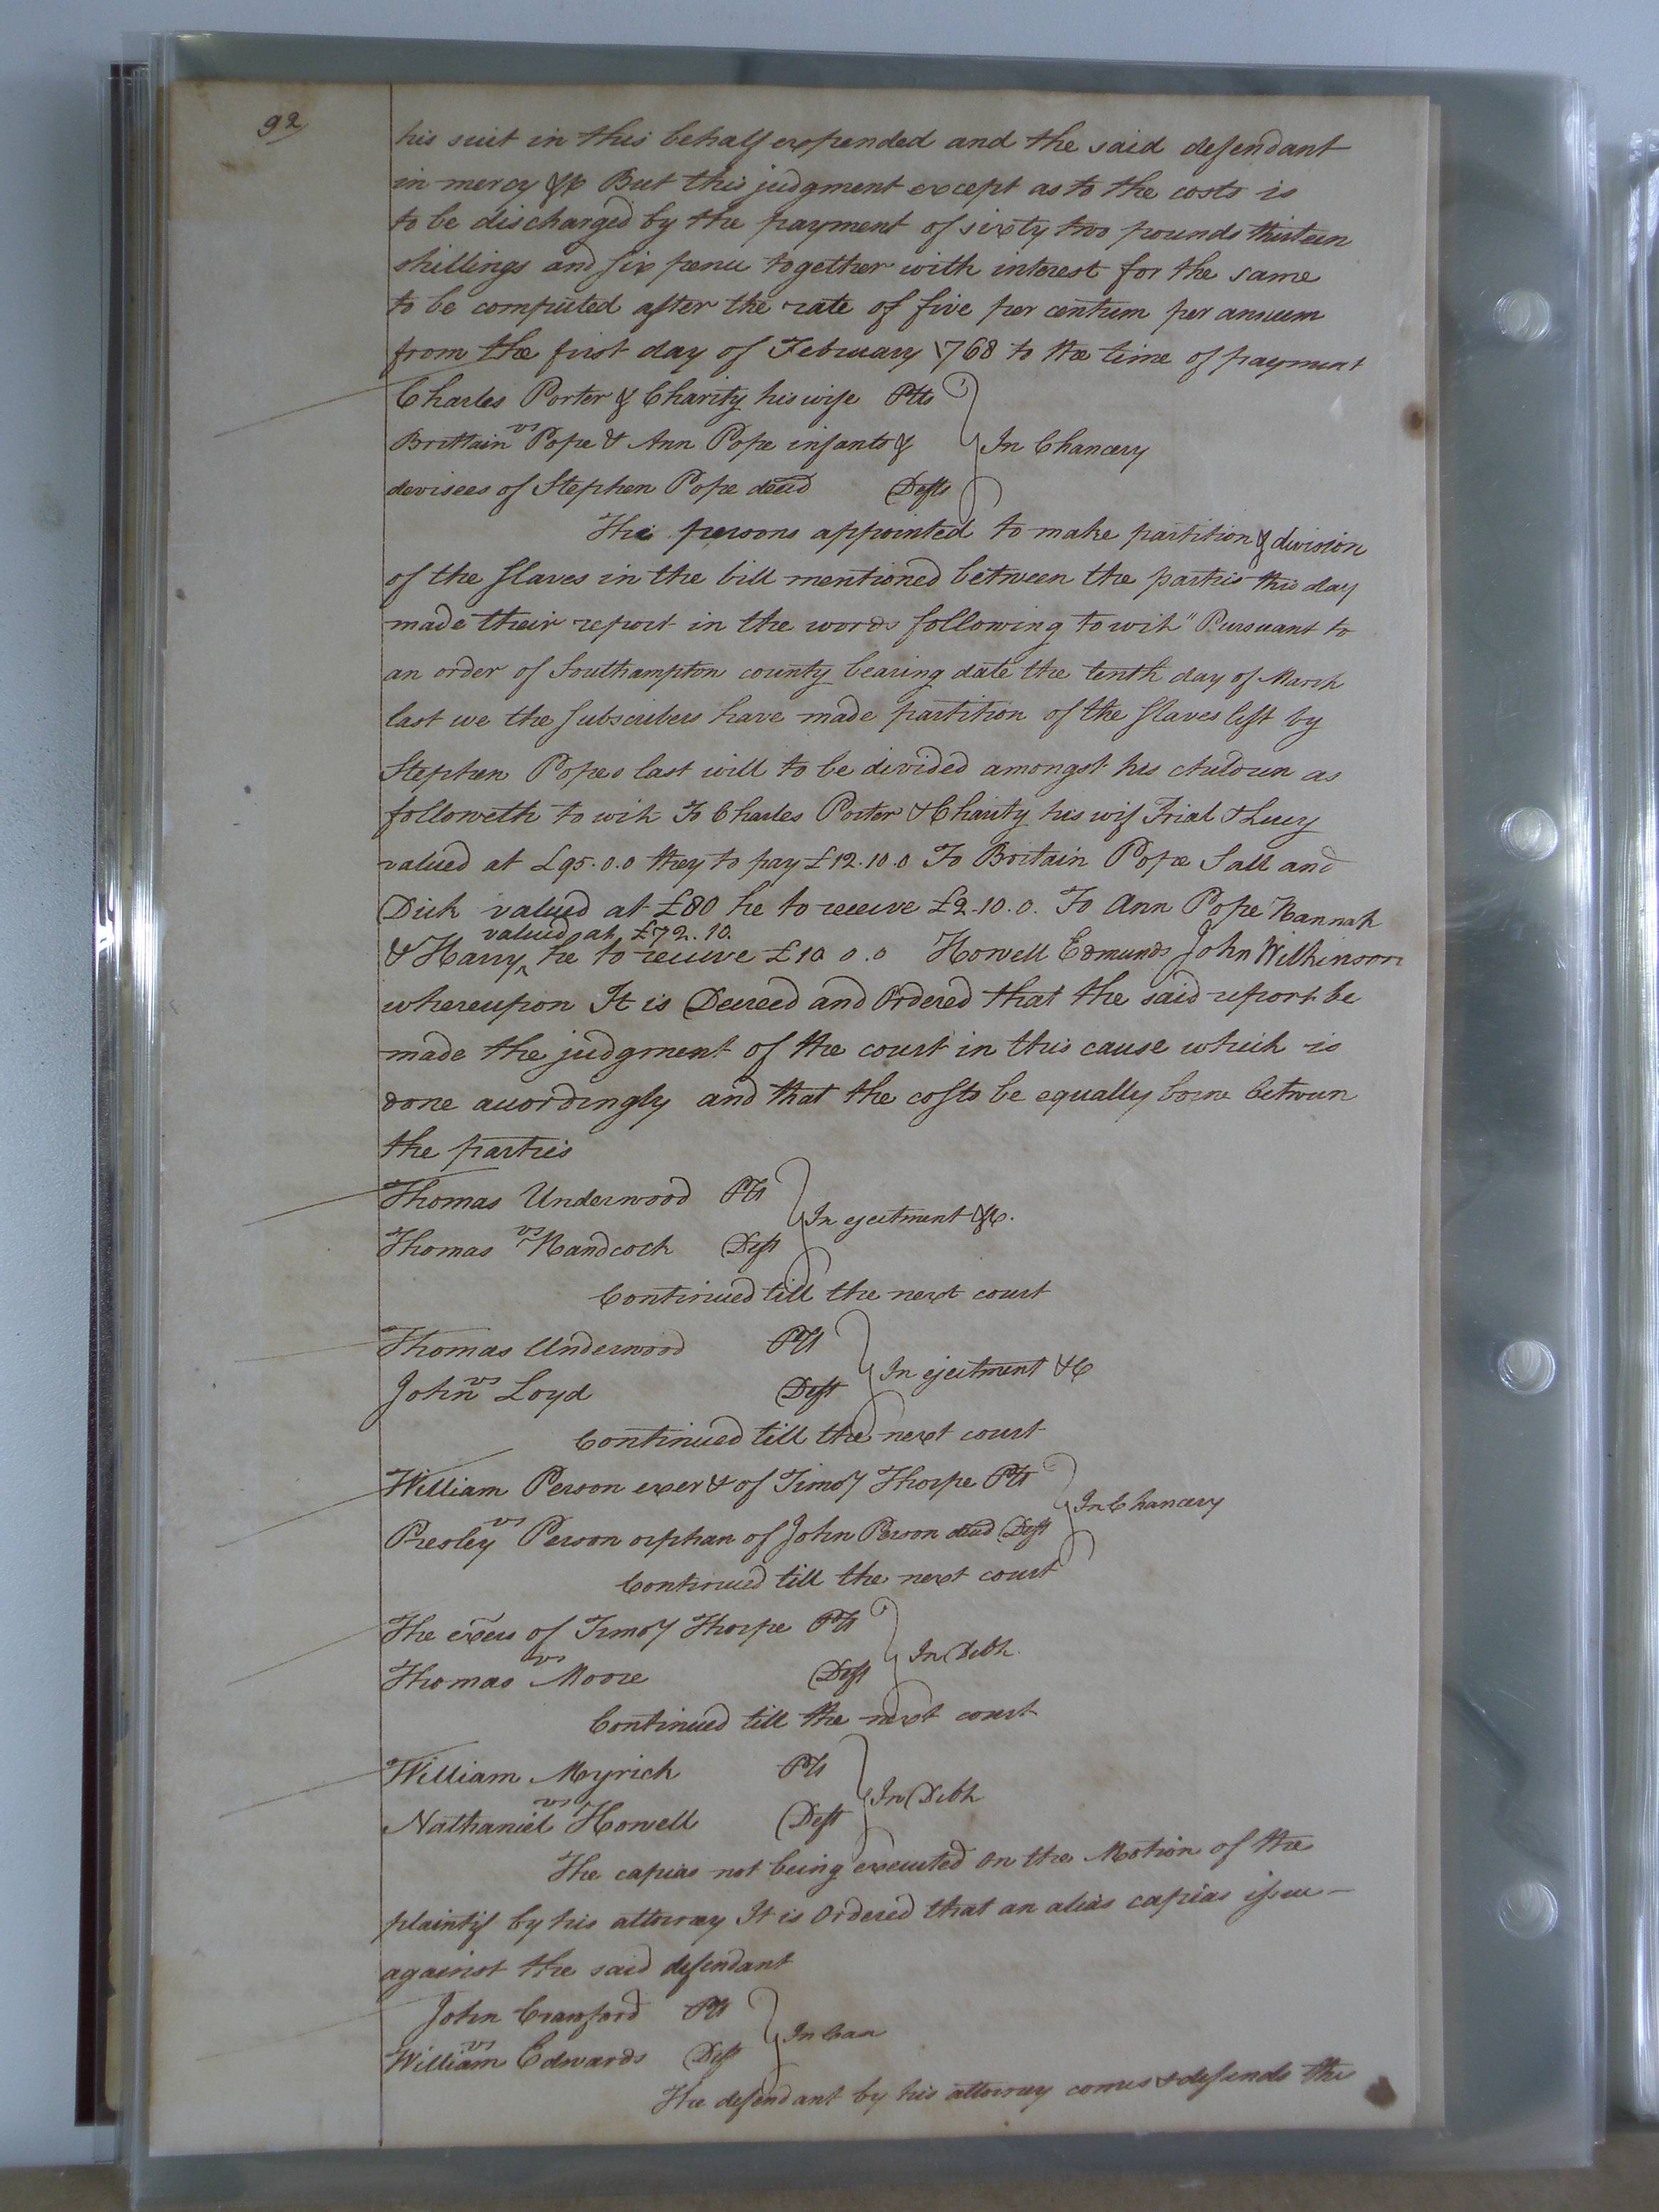 92
his suit in this behalf expended and the said defendant
in mercy &c But this judgment except as to the costs is
to be discharged by the payment of sixty two pounds thirteen
shillings and six pence together with interest for the same
to be computed after the rate of five per centum per annum
from the first day of February 1768 to the time of payment
Charles Porter & Charity his wife Plts
vs
In Chancery
Brittain Pope & Ann Pope infants &
devisees of Stephen Pope decd Defts
The persons appointed to make partition & division
of the slaves in the bill mentioned between the parties this day
made their report in the words following to wit "Pursuant to
an order of Southampton county bearing date the tenth day of March
last we the subscribers have made partition of the slaves left by
Stephen Popes last will to be divided amongst his children as
followeth to wit To Charles Porter & Charity his wif Trial & Lucy
valued at £95.0.0 they to pay £12.10.0 To Britain Pope Sall and
Dick valued at £80 he to receive £2.10.0. To Ann Pope Hannah
valued at £72.10.
& Harry ^ he to receive £10 0.0 Howell Edmunds John Wilkinson
whereupon It is Decreed and Ordered that the said report be
made the judgment of the court in this cause which is
done accordingly and that the costs be equally borne between
the parties
Thomas Underwood Plt
vs
In ejectment &c.
Thomas Handcock Deft
Continued till the next court
Thomas Underwood Plt
vs
In ejectment &c
John Loyd Deft
Continued till the next court
William Person exer & of Timoy Thorpe Plt
vs
In Chancery
Presley Person orphan of John Person decd Deft
Continued till the next court
The exers of Timoy Thorpe Plt
vs
In Debt.
Thomas Moore Deft
Continued till the next court
William Myrick Plt
vs
In Debt
Nathaniel Howell Deft
The capias not being executed On the Motion of the
plaintif by his attorney It is Ordered that an alias capias issue
against the said defendant
John Crawford Plt
vs
In Case
William Edwards Deft
The defendant by his attorney comes & defends the